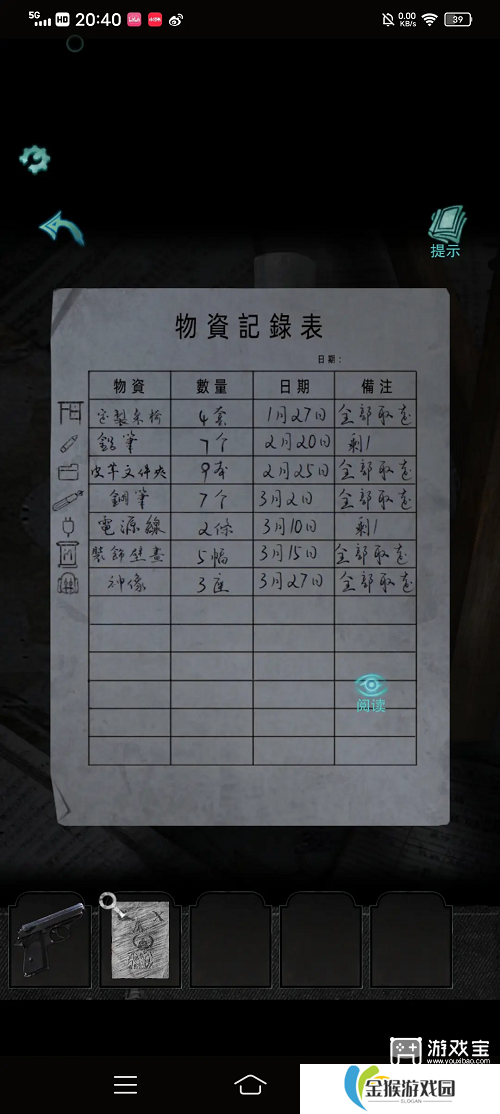 5G HD 20:40 0.00 KB/s 39
提示
物資記錄表
日期：
物資 數量 日期 備注
定製桌椅 4套 1月27日 全部取走
鉛筆 7个 2月20日 剩1
皮革文件夾 9本 2月25日 全部取走
鋼筆 7个 3月2日 全部取走
電源線 2條 3月10日 剩1
裝飾壁畫 5幅 3月15日 全部取走
神像 3座 3月27日 全部取走
阅读
游戏宝
www.youxibao.com
金猴游戏园
SLOGAN